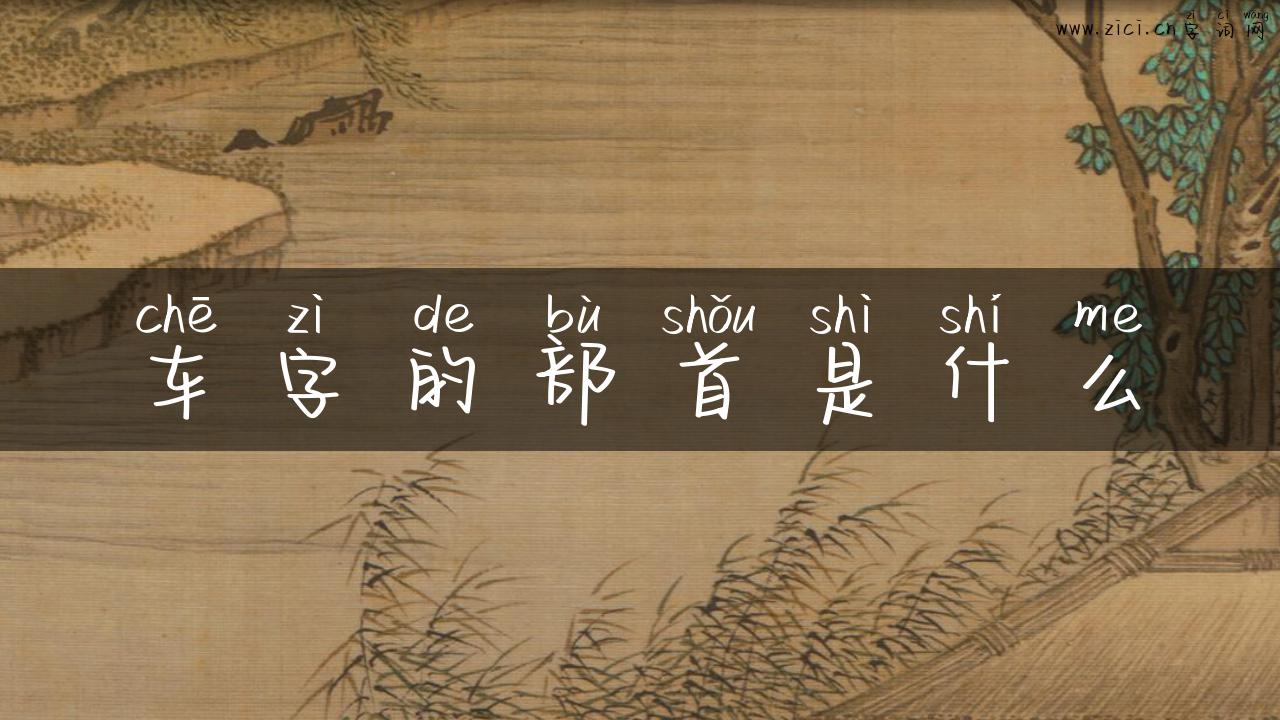 zì cí wǎng
www.zici.cn字词网
chē zì de bù shǒu shì shí me
车字的部首是什么